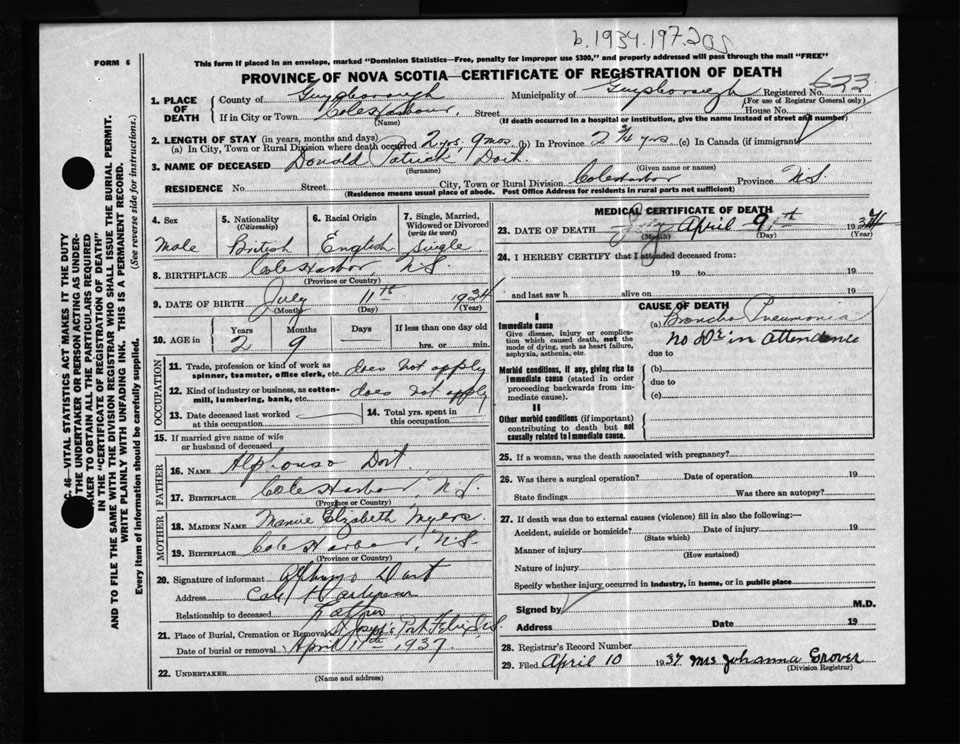 b.1934.197.2
FORM 6
This form if placed in an envelope, marked "Dominion Statistics—Free, penalty for improper use $300," and properly addressed will pass through the mail "FREE"
PROVINCE OF NOVA SCOTIA—CERTIFICATE OF REGISTRATION OF DEATH
1. PLACE OF DEATH
County of Guysborough Municipality of Guysborough Registered No. 633
(For use of Registrar General only)
If in City or Town Coles Harbour, Street House No.
(Name) (If death occurred in a hospital or institution, give the name instead of street and number)
2. LENGTH OF STAY (in years, months and days)
(a) In City, Town or Rural Division where death occurred 2 yrs. 9 mos. (b) In Province 2 3/4 yrs. (c) In Canada (if immigrant)
3. NAME OF DECEASED Donald Patrick Dort
(Surname) (Given name or names)
RESIDENCE No. Street City, Town or Rural Division Coleharbor Province N.S.
(Residence means usual place of abode. Post Office Address for residents in rural parts not sufficient)
4. Sex
Male
5. Nationality
(Citizenship)
British
6. Racial Origin
English
7. Single, Married, Widowed or Divorced
(write the word)
Single
8. BIRTHPLACE Coles Harbor, N.S.
(Province or Country)
9. DATE OF BIRTH July 11th 1934
(Month) (Day) (Year)
10. AGE in
Years Months Days If less than one day old
2 9 — hrs. or min.
OCCUPATION
11. Trade, profession or kind of work as spinner, teamster, office clerk, etc. does not apply
12. Kind of industry or business, as cotton-mill, lumbering, bank, etc. does not apply
13. Date deceased last worked at this occupation
14. Total yrs. spent in this occupation
15. If married give name of wife or husband of deceased
FATHER
16. NAME Alphonso Dort
17. BIRTHPLACE Coles Harbor, N.S.
(Province or Country)
MOTHER
18. MAIDEN NAME Elizabeth Myers
19. BIRTHPLACE Cole Harbor, N.S.
(Province or Country)
20. Signature of informant Dort
Address Cole
Relationship to deceased Father
21. Place of Burial, Cremation or Removal St Joseph's Port Felix N.S
Date of burial or removal April 11th 1937
22. UNDERTAKER
(Name and address)
MEDICAL CERTIFICATE OF DEATH
23. DATE OF DEATH April 9th 1937
(Month) (Day) (Year)
24. I HEREBY CERTIFY that I attended deceased from:
19 to 19
and last saw h alive on 19
CAUSE OF DEATH
I
Immediate cause
Give disease, injury or complication which caused death, not the mode of dying, such as heart failure, asphyxia, asthenia, etc.
(a) Broncho Pneumonia
no Dr. in attendance
due to
Morbid conditions, if any, giving rise to immediate cause (stated in order proceeding backwards from immediate cause).
(b)
due to
(c)
II
Other morbid conditions (if important) contributing to death but not causally related to immediate cause.
25. If a woman, was the death associated with pregnancy?
26. Was there a surgical operation? Date of operation 19
State findings Was there an autopsy?
27. If death was due to external causes (violence) fill in also the following:—
Accident, suicide or homicide? Date of injury 19
(State which)
Manner of injury
(How sustained)
Nature of injury
Specify whether injury occurred in industry, in home, or in public place
Signed by M.D.
Address Date 19
28. Registrar's Record Number
29. Filed April 10 1937 Mrs Johanna Grover
(Division Registrar)
46—VITAL STATISTICS ACT MAKES IT THE DUTY
THE UNDERTAKER OR PERSON ACTING AS UNDER-
TAKER TO OBTAIN ALL THE PARTICULARS REQUIRED
IN THE "CERTIFICATE OF REGISTRATION OF DEATH"
AND TO FILE THE SAME WITH THE DIVISION REGISTRAR WHO SHALL ISSUE THE BURIAL PERMIT.
WRITE PLAINLY WITH UNFADING INK. THIS IS A PERMANENT RECORD.
Every item of information should be carefully supplied. (See reverse side for instructions.)